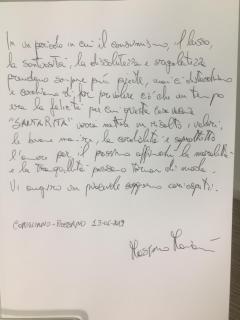 In un periodo in cui il consumismo, il lusso,
la sontuosità, la dissolutezza e sregolatezza
prendono sempre più piede, noi ci dissociamo
e cerchiamo di far prevalere ciò che un tempo
era la felicità per cui questa casa
"SANTA RITA" vorrà mettere in risalto, valori,
le buone maniere, la cordialità e soprattutto
l'amore per il prossimo affinchè la moralità
e la tranquillità possano tornare di moda.
Vi auguro un piacevole soggiorno cari ospiti.
CORIGLIANO - ROSSANO 13-06-2019